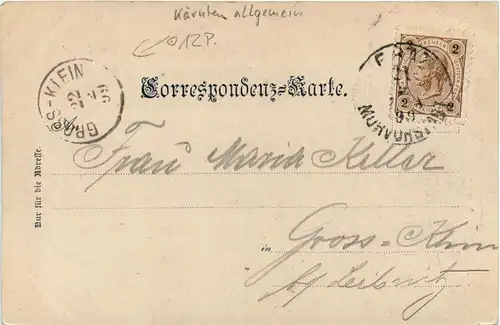 Kärnten allgemein
12P.
Correspondenz-Karte.
GRAS-KLEIN
22
99
2 KREUZER 2
2 2
Frau Maria Keller
in Gross-Klein
b/ Leibnitz
Nur für die Adresse.